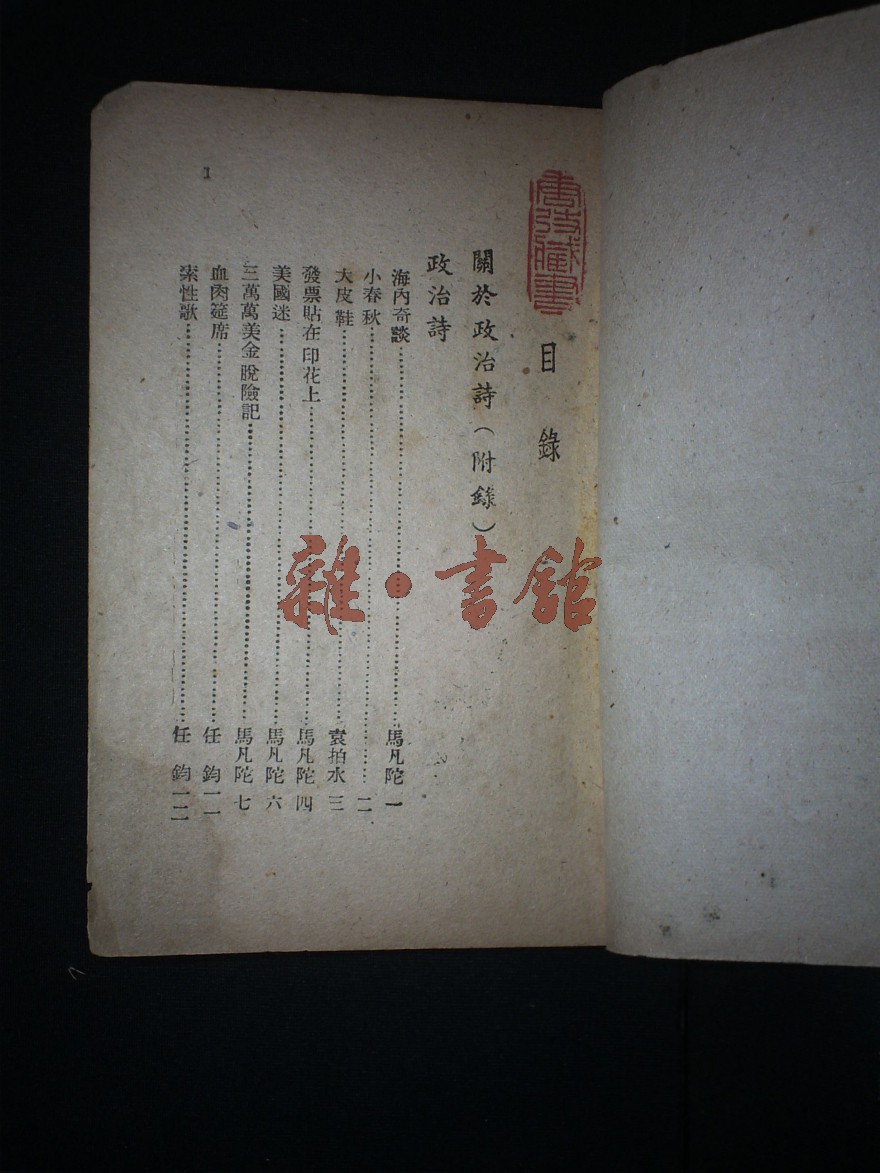 唐弢藏書
目錄
關於政治詩（附錄）
政治詩
海內奇談……馬凡陀 一
小春秋……二
大皮鞋……袁拍水 三
發票貼在印花上……馬凡陀 四
美國迷……馬凡陀 六
三萬萬美金脫險記……馬凡陀 七
血肉筵席……任鈞 一一
索性歌……任鈞 一二
1
雜·書館